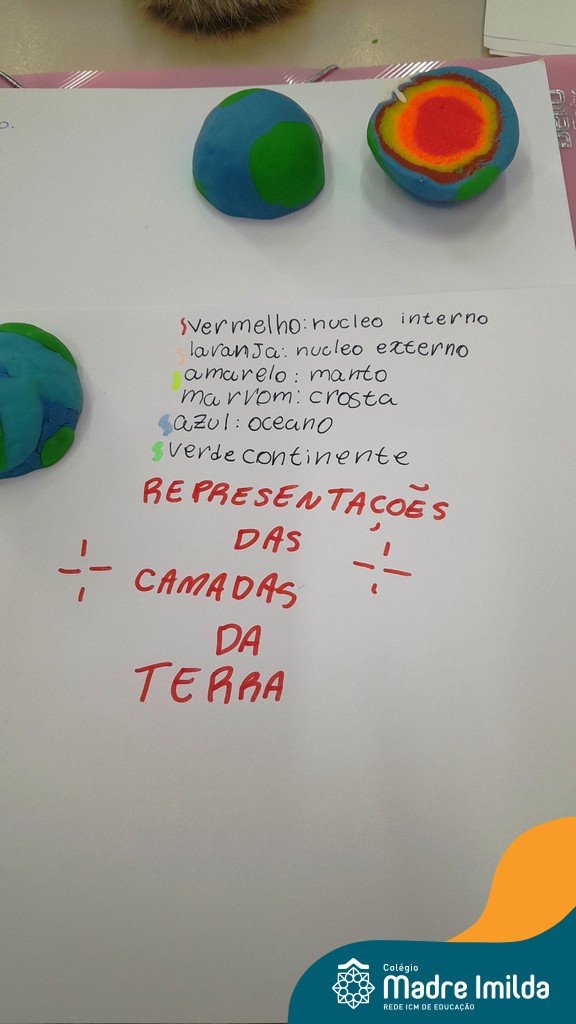 vermelho: nucleo interno
laranja: nucleo externo
amarelo: manto
marrom: crosta
azul: oceano
verde continente
REPRESENTAÇOẼS
DAS
CAMADAS
DA
TERRA
Colégio
Madre Imilda
REDE ICM DE EDUCAÇÃO